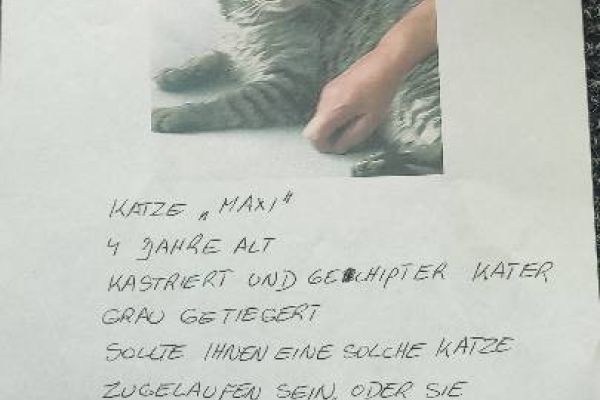 KATZE „MAXI"
4 JAHRE ALT
KASTRIERT UND GECHIPTER KATER
GRAU GETIEGERT
SOLLTE IHNEN EINE SOLCHE KATZE
ZUGELAUFEN SEIN, ODER SIE